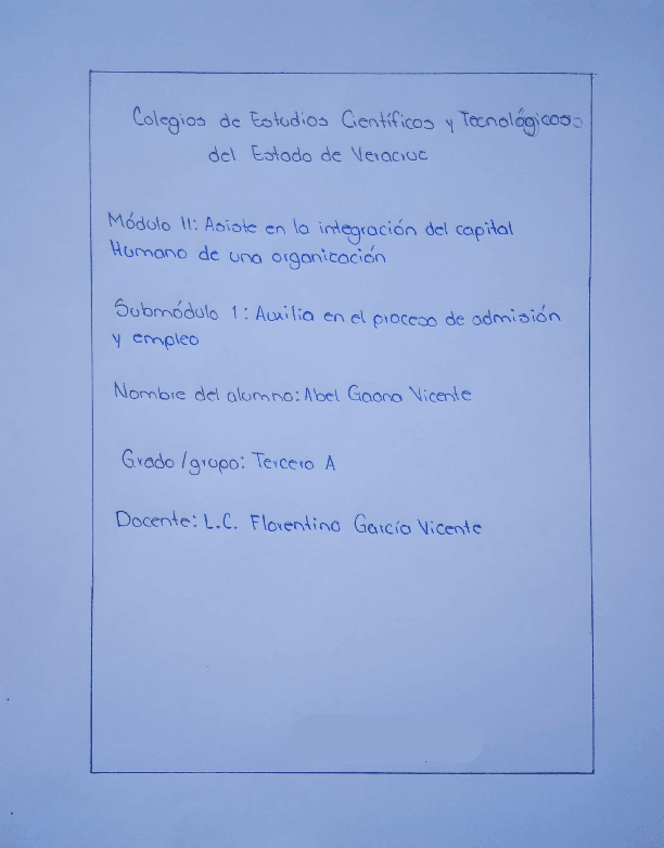 Colegios de Estudios Científicos y Tecnológicos
del Estado de Veracruz
Módulo II: Asiste en la integración del capital
Humano de una organización
Submódulo 1: Auxilia en el proceso de admisión
y empleo
Nombre del alumno: Abel Gaona Vicente
Grado/grupo: Tercero A
Docente: L.C. Florentino García Vicente